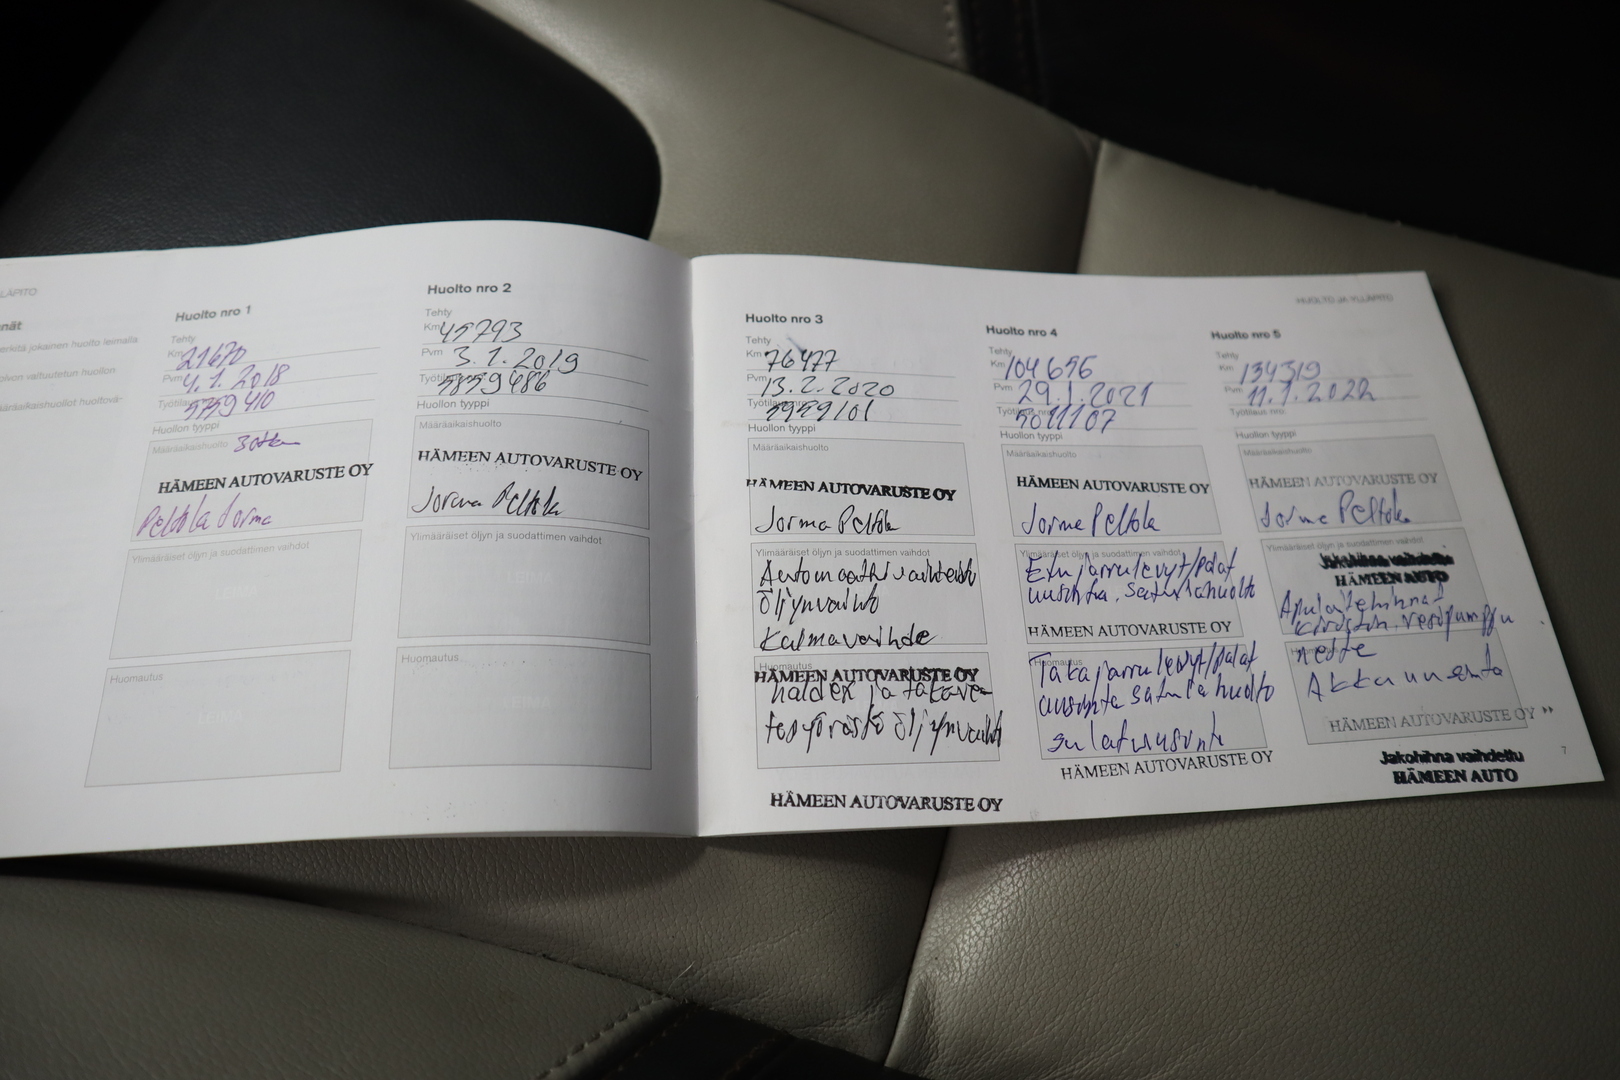 LÄPITO
nnät
erkitä jokainen huolto leimalla
olvon valtuutetun huollon
määräaikaishuollot huoltovä-
Huolto nro 1
Tehty
Km 21670
Pvm 4.1.2018
Työtilaus 5759410
Huollon tyyppi
Määräaikaishuolto
HÄMEEN AUTOVARUSTE OY
Peltola Jorma
Ylimääräiset öljyn ja suodattimen vaihdot
LEIMA
Huomautus
LEIMA
Huolto nro 2
Tehty
Km 45793
Pvm 3.1.2019
Työtilaus 5859486
Huollon tyyppi
Määräaikaishuolto
HÄMEEN AUTOVARUSTE OY
Jorma Peltola
Ylimääräiset öljyn ja suodattimen vaihdot
LEIMA
Huomautus
LEIMA
HUOLTO JA YLLÄPITO
Huolto nro 3
Tehty
Km 76477
Pvm 13.2.2020
Työtilaus nro: 5959101
Huollon tyyppi
Määräaikaishuolto
HÄMEEN AUTOVARUSTE OY
Jorma Peltola
Ylimääräiset öljyn ja suodattimen vaihdot
Automaattivaihteisto
öljynvaihto
Kulmavaihde
Huomautus
HÄMEEN AUTOVARUSTE OY
haldex ja takave-
topyörästö öljynvaihto
HÄMEEN AUTOVARUSTE OY
Huolto nro 4
Tehty
Km 104656
Pvm 29.1.2021
Työtilaus nro: 5011107
Huollon tyyppi
Määräaikaishuolto
HÄMEEN AUTOVARUSTE OY
Jorma Peltola
Ylimääräiset öljyn ja suodattimen vaihdot
Etujarrulevyt/palat
uusinta. satulahuolto
HÄMEEN AUTOVARUSTE OY
Huomautus
Takajarrulevyt/palat
uusinta satulahuolto
HÄMEEN AUTOVARUSTE OY
Huolto nro 5
Tehty
Km 134319
Pvm 11.1.2022
Työtilaus nro:
Huollon tyyppi
Määräaikaishuolto
HÄMEEN AUTOVARUSTE OY
Jorma Peltola
Ylimääräiset öljyn ja suodattimen vaihdot
Jakohihna vaihdettu
HÄMEEN AUTO
Apulaitehihna+
kiristin. vesipumppu
neste
Akku uusinta
HÄMEEN AUTOVARUSTE OY ►►
7
Jakohihna vaihdettu
HÄMEEN AUTO